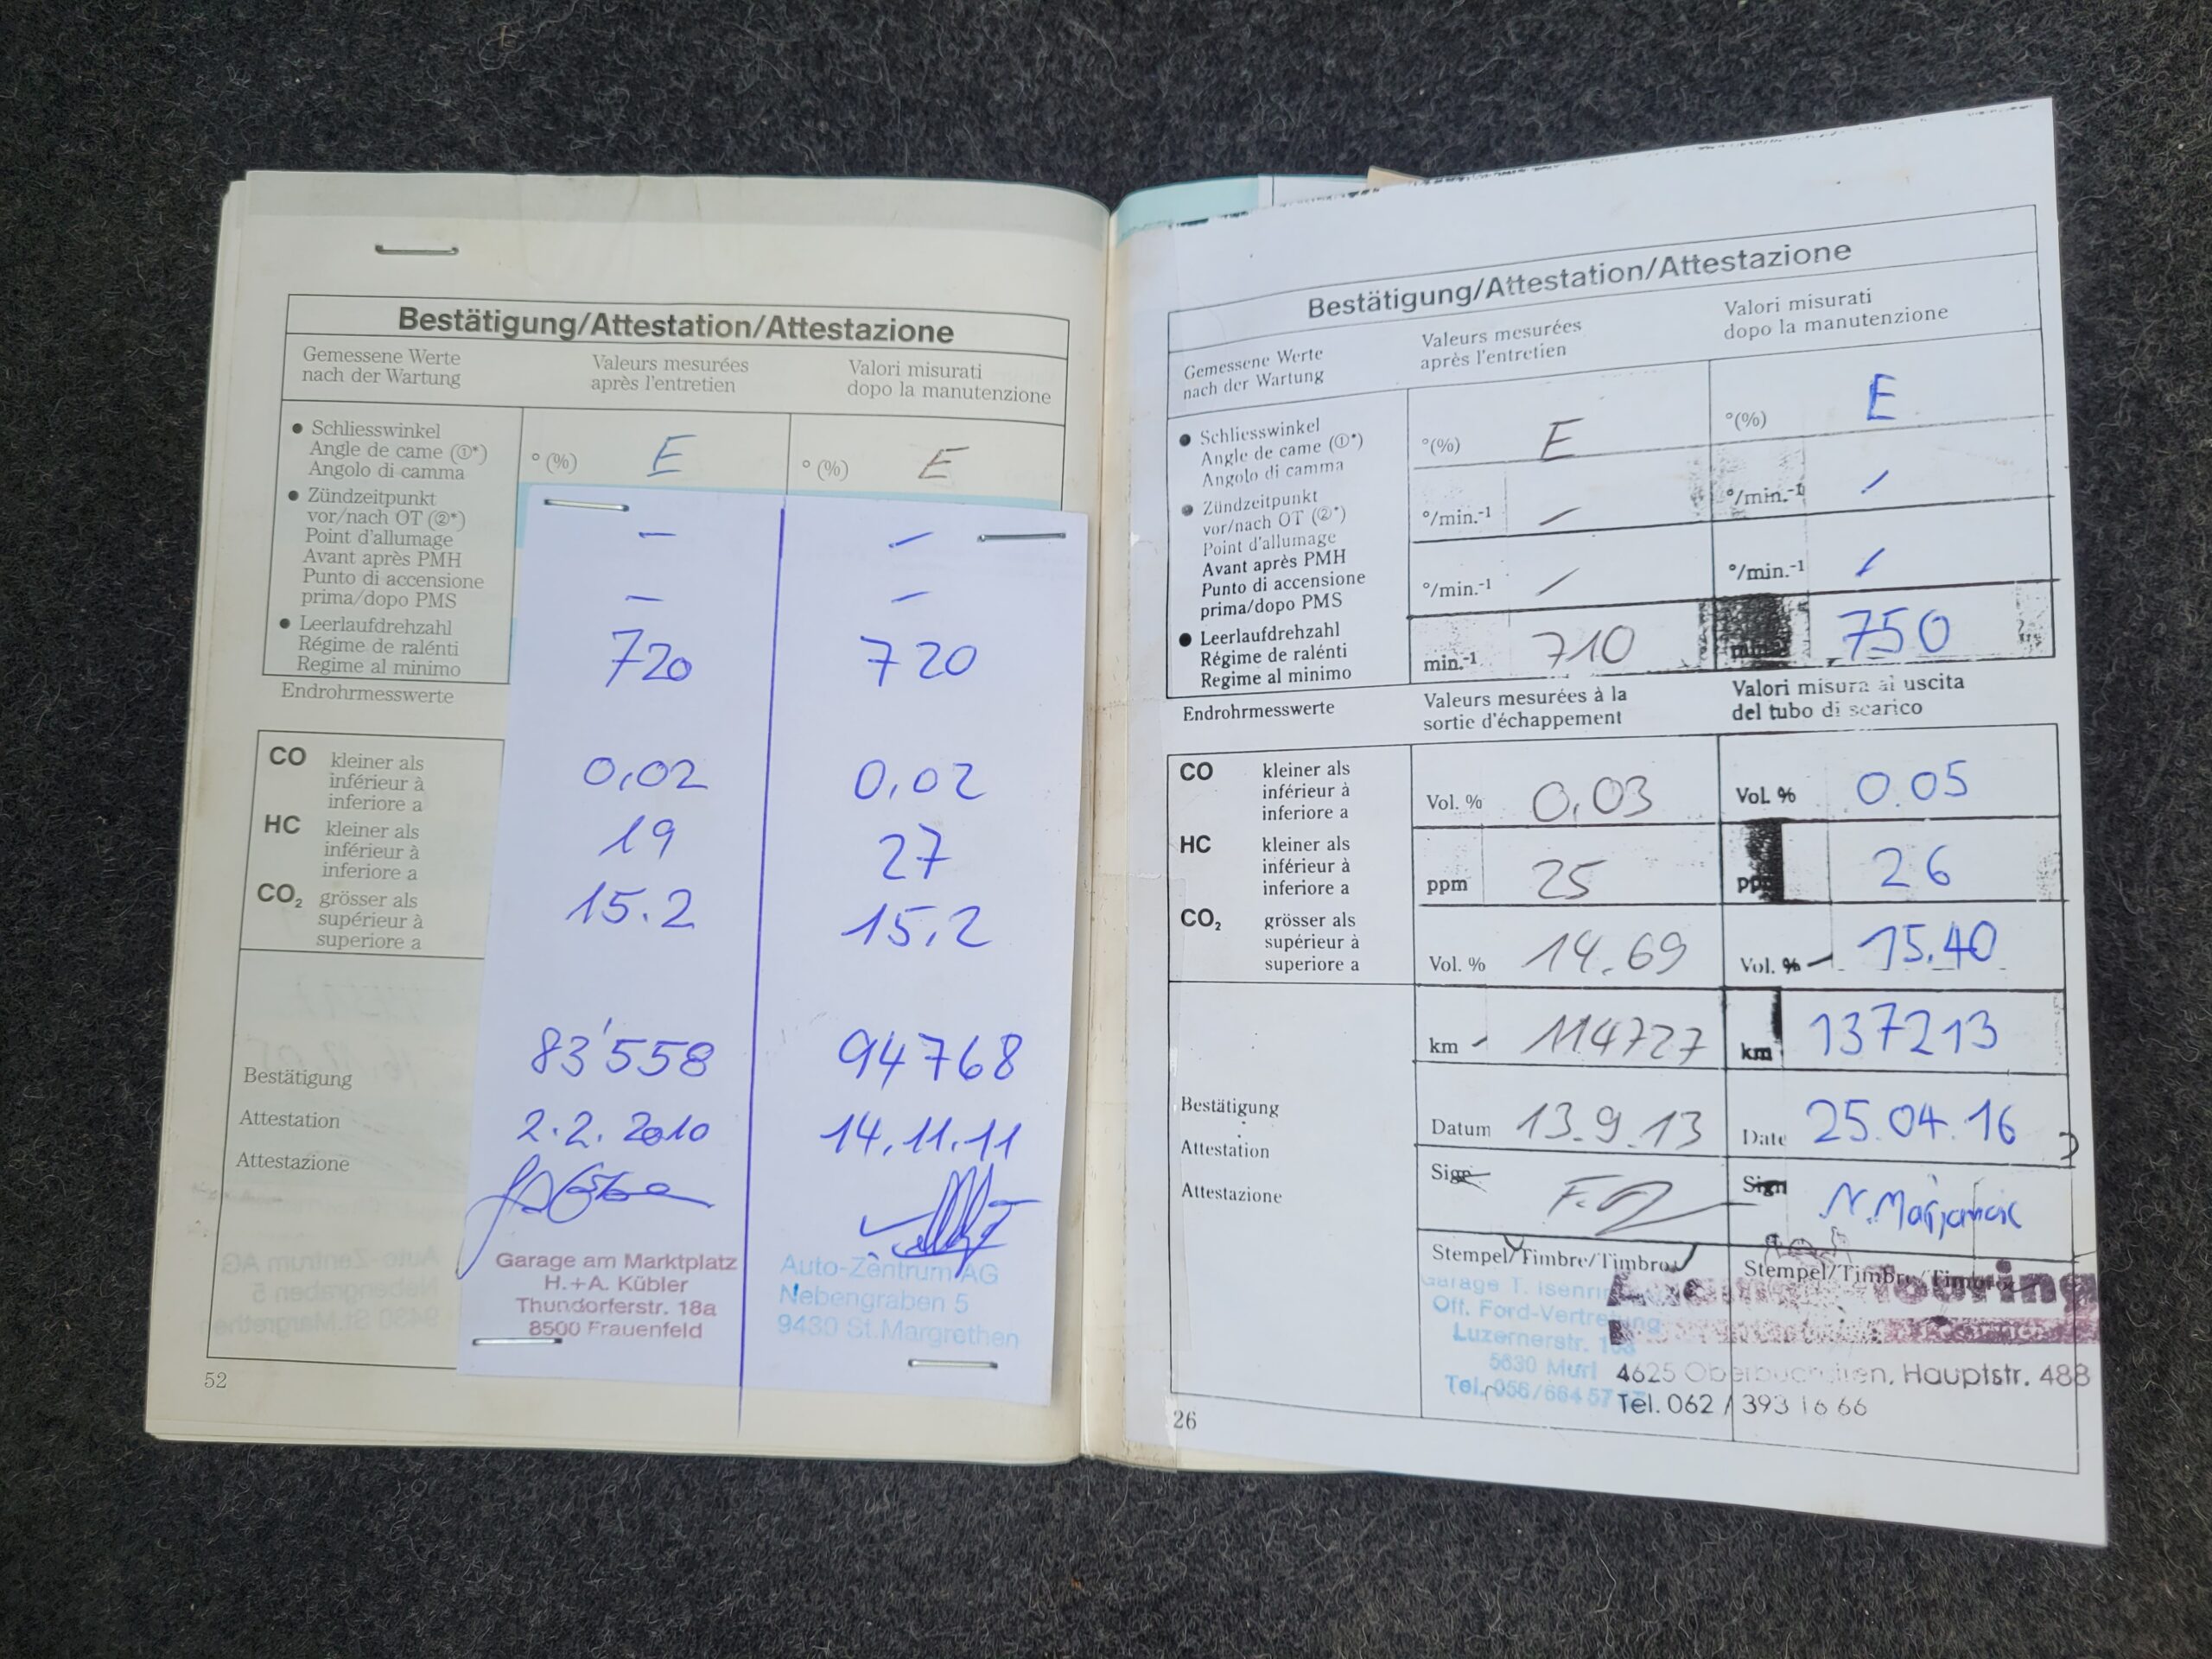 Bestätigung/Attestation/Attestazione
Gemessene Werte
nach der Wartung
Valeurs mesurées
après l'entretien
Valori misurati
dopo la manutenzione
• Schliesswinkel
Angle de came (①*)
Angolo di camma
° (%) E
° (%) E
• Zündzeitpunkt
vor/nach OT (②*)
Point d'allumage
Avant après PMH
Punto di accensione
prima/dopo PMS
– –
– –
• Leerlaufdrehzahl
Régime de ralénti
Regime al minimo
720 720
Endrohrmesswerte
CO kleiner als
inférieur à
inferiore a
0,02 0,02
HC kleiner als
inférieur à
inferiore a
19 27
CO₂ grösser als
supérieur à
superiore a
15.2 15,2
83'558 94768
Bestätigung
Attestation
Attestazione
2.2.2010 14.11.11
Garage am Marktplatz
H.+A. Kübler
Thundorferstr. 18a
8500 Frauenfeld
Auto-Zentrum AG
Nebengraben 5
9430 St.Margrethen
52
Bestätigung/Attestation/Attestazione
Gemessene Werte
nach der Wartung
Valeurs mesurées
après l'entretien
Valori misurati
dopo la manutenzione
• Schliesswinkel
Angle de came (①*)
Angolo di camma
°(%) E
°(%) E
• Zündzeitpunkt
vor/nach OT (②*)
Point d'allumage
Avant après PMH
Punto di accensione
prima/dopo PMS
°/min.-1 – °/min.-1 –
°/min.-1 – °/min.-1 –
• Leerlaufdrehzahl
Régime de ralénti
Regime al minimo
min.-1 710 750
Endrohrmesswerte
Valeurs mesurées à la
sortie d'échappement
Valori misura al uscita
del tubo di scarico
CO kleiner als
inférieur à
inferiore a
Vol. % 0,03 Vol. % 0.05
HC kleiner als
inférieur à
inferiore a
ppm 25 26
CO₂ grösser als
supérieur à
superiore a
Vol. % 14.69 Vol. % 15.40
km 114727 km 137213
Bestätigung
Attestation
Attestazione
Datum 13.9.13 Date 25.04.16
Sign
Sign
Stempel/Timbre/Timbro
Stempel/Timbre/Timbro
Garage T. Isenring
Off. Ford-Vertretung
Luzernerstr.
5630 Muri
Tel. 056/664 57
Touring
4625 Oberbuchsiten, Hauptstr. 488
Tel. 062 / 393 16 66
26